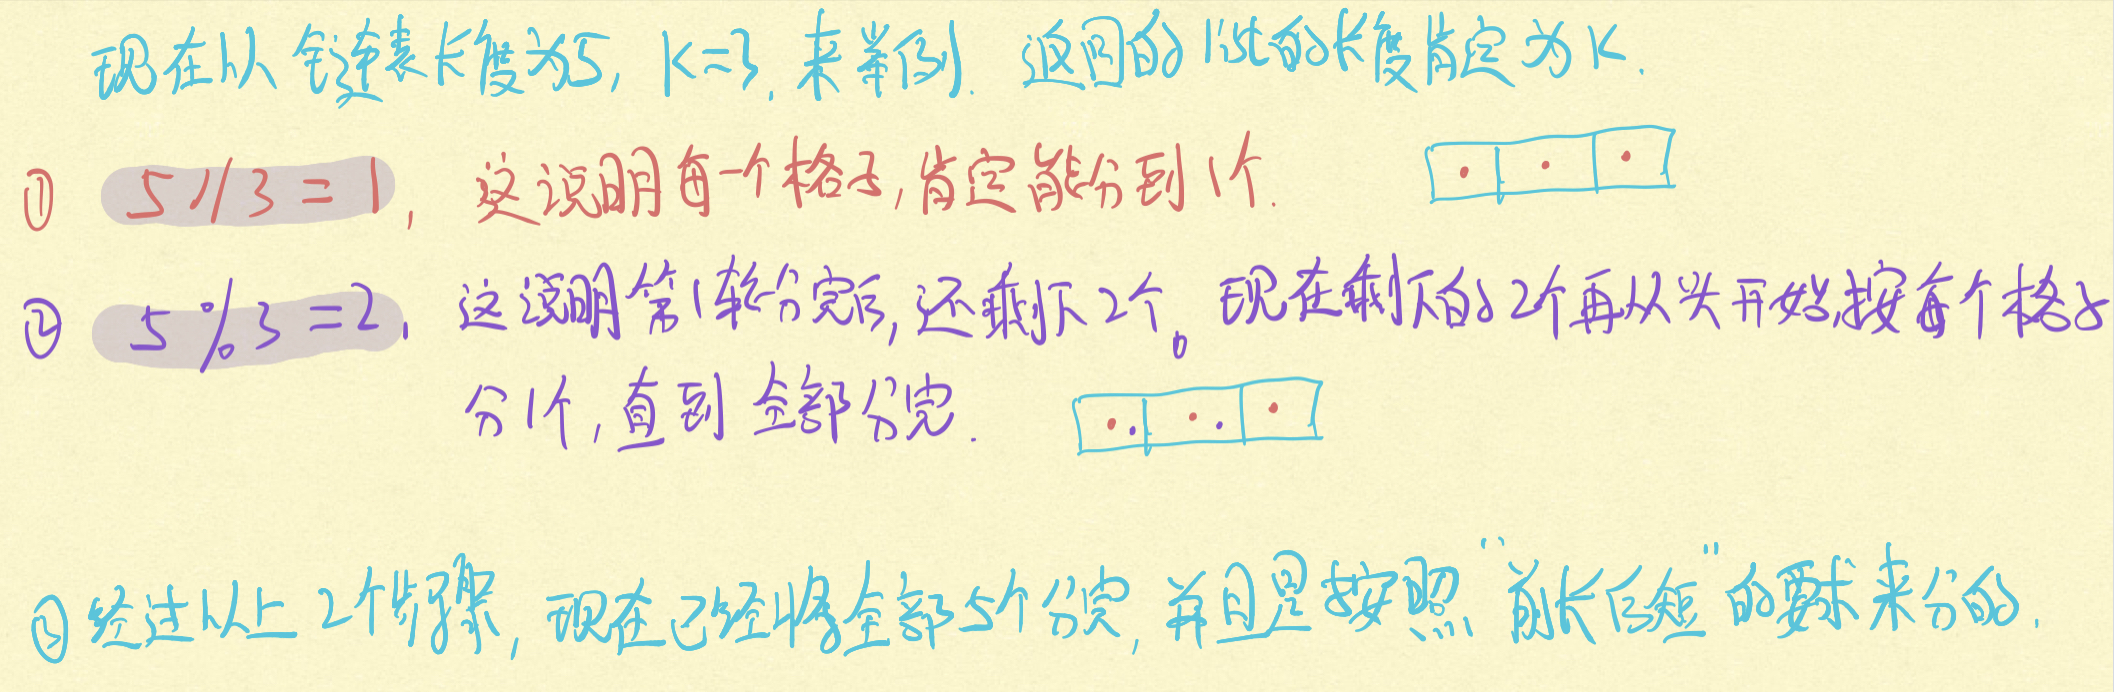 现在以链表长度为5, K=3, 来举例. 返回的list的长度肯定为K.
① 5//3=1, 这说明每一个格子,肯定能分到1个.
② 5%3=2, 这说明第1轮分完后,还剩下2个。现在剩下的2个再从头开始,按每个格子
分1个,直到全部分完.
③ 经过以上2个步骤,现在已经将全部5个分完,并且是按照“前长后短”的要求来分的.